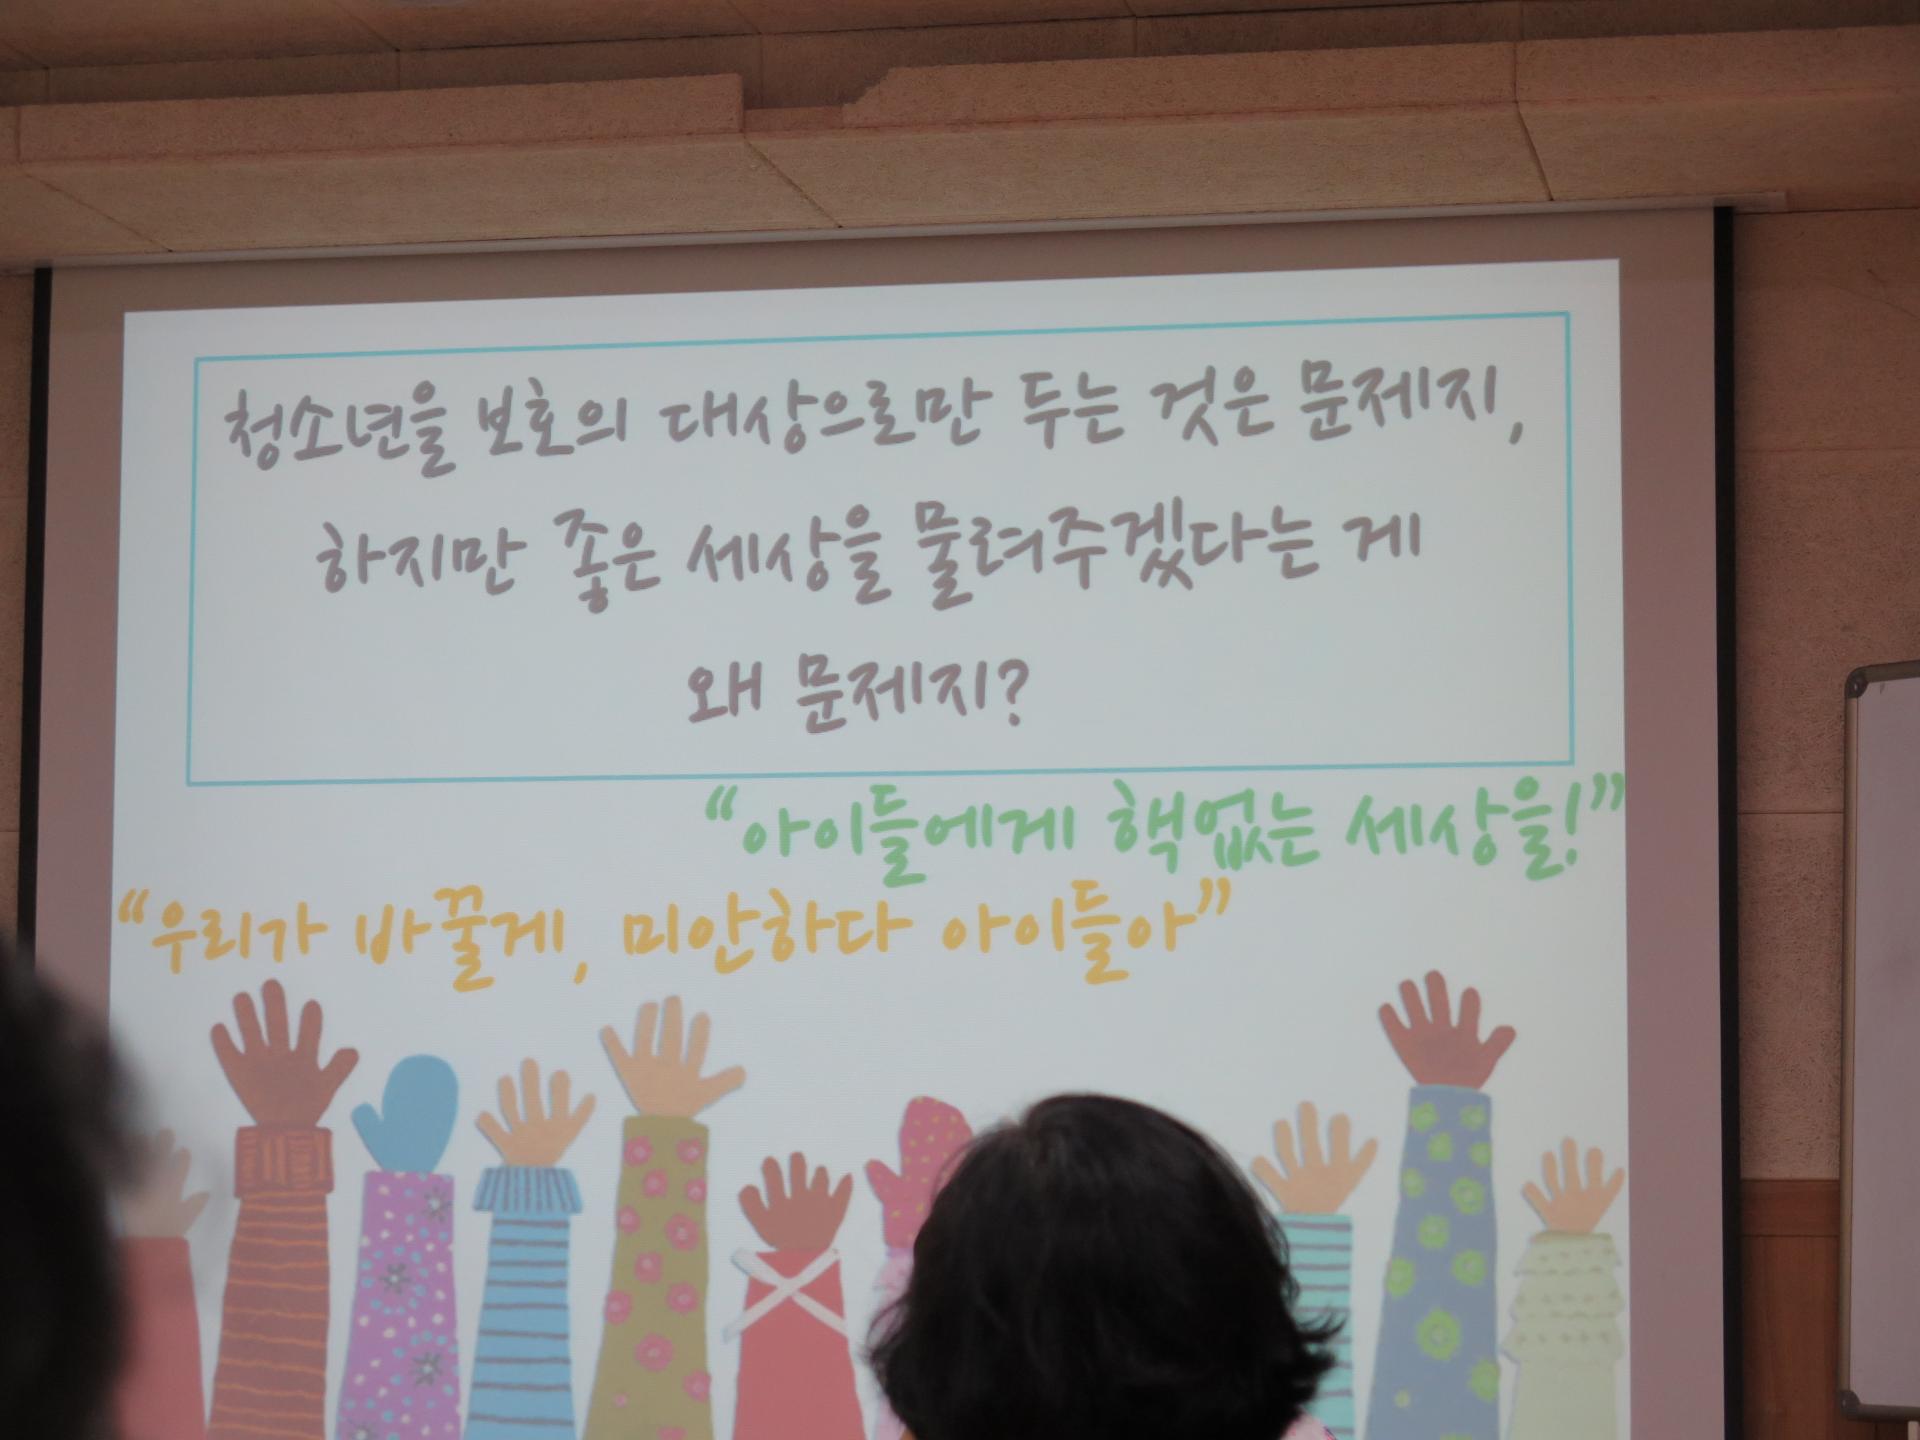 청소년을 보호의 대상으로만 두는 것은 문제지,
하지만 좋은 세상을 물려주겠다는 게
왜 문제지?
“아이들에게 핵없는 세상을!”
“우리가 바꿀게, 미안하다 아이들아”